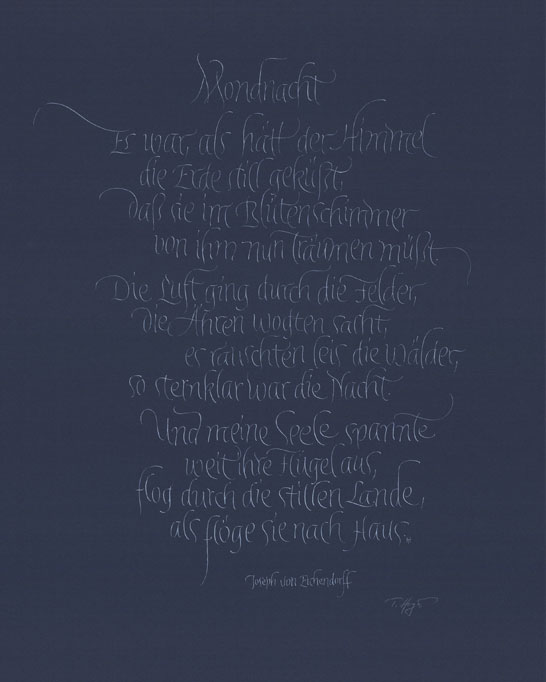 Mondnacht
Es war, als hätt der Himmel
die Erde still geküßt,
daß sie im Blütenschimmer
von ihm nun träumen müßt.
Die Luft ging durch die Felder,
die Ähren wogten sacht,
es rauschten leis die Wälder,
so sternklar war die Nacht.
Und meine Seele spannte
weit ihre Flügel aus,
flog durch die stillen Lande,
als flöge sie nach Haus.
Joseph von Eichendorff